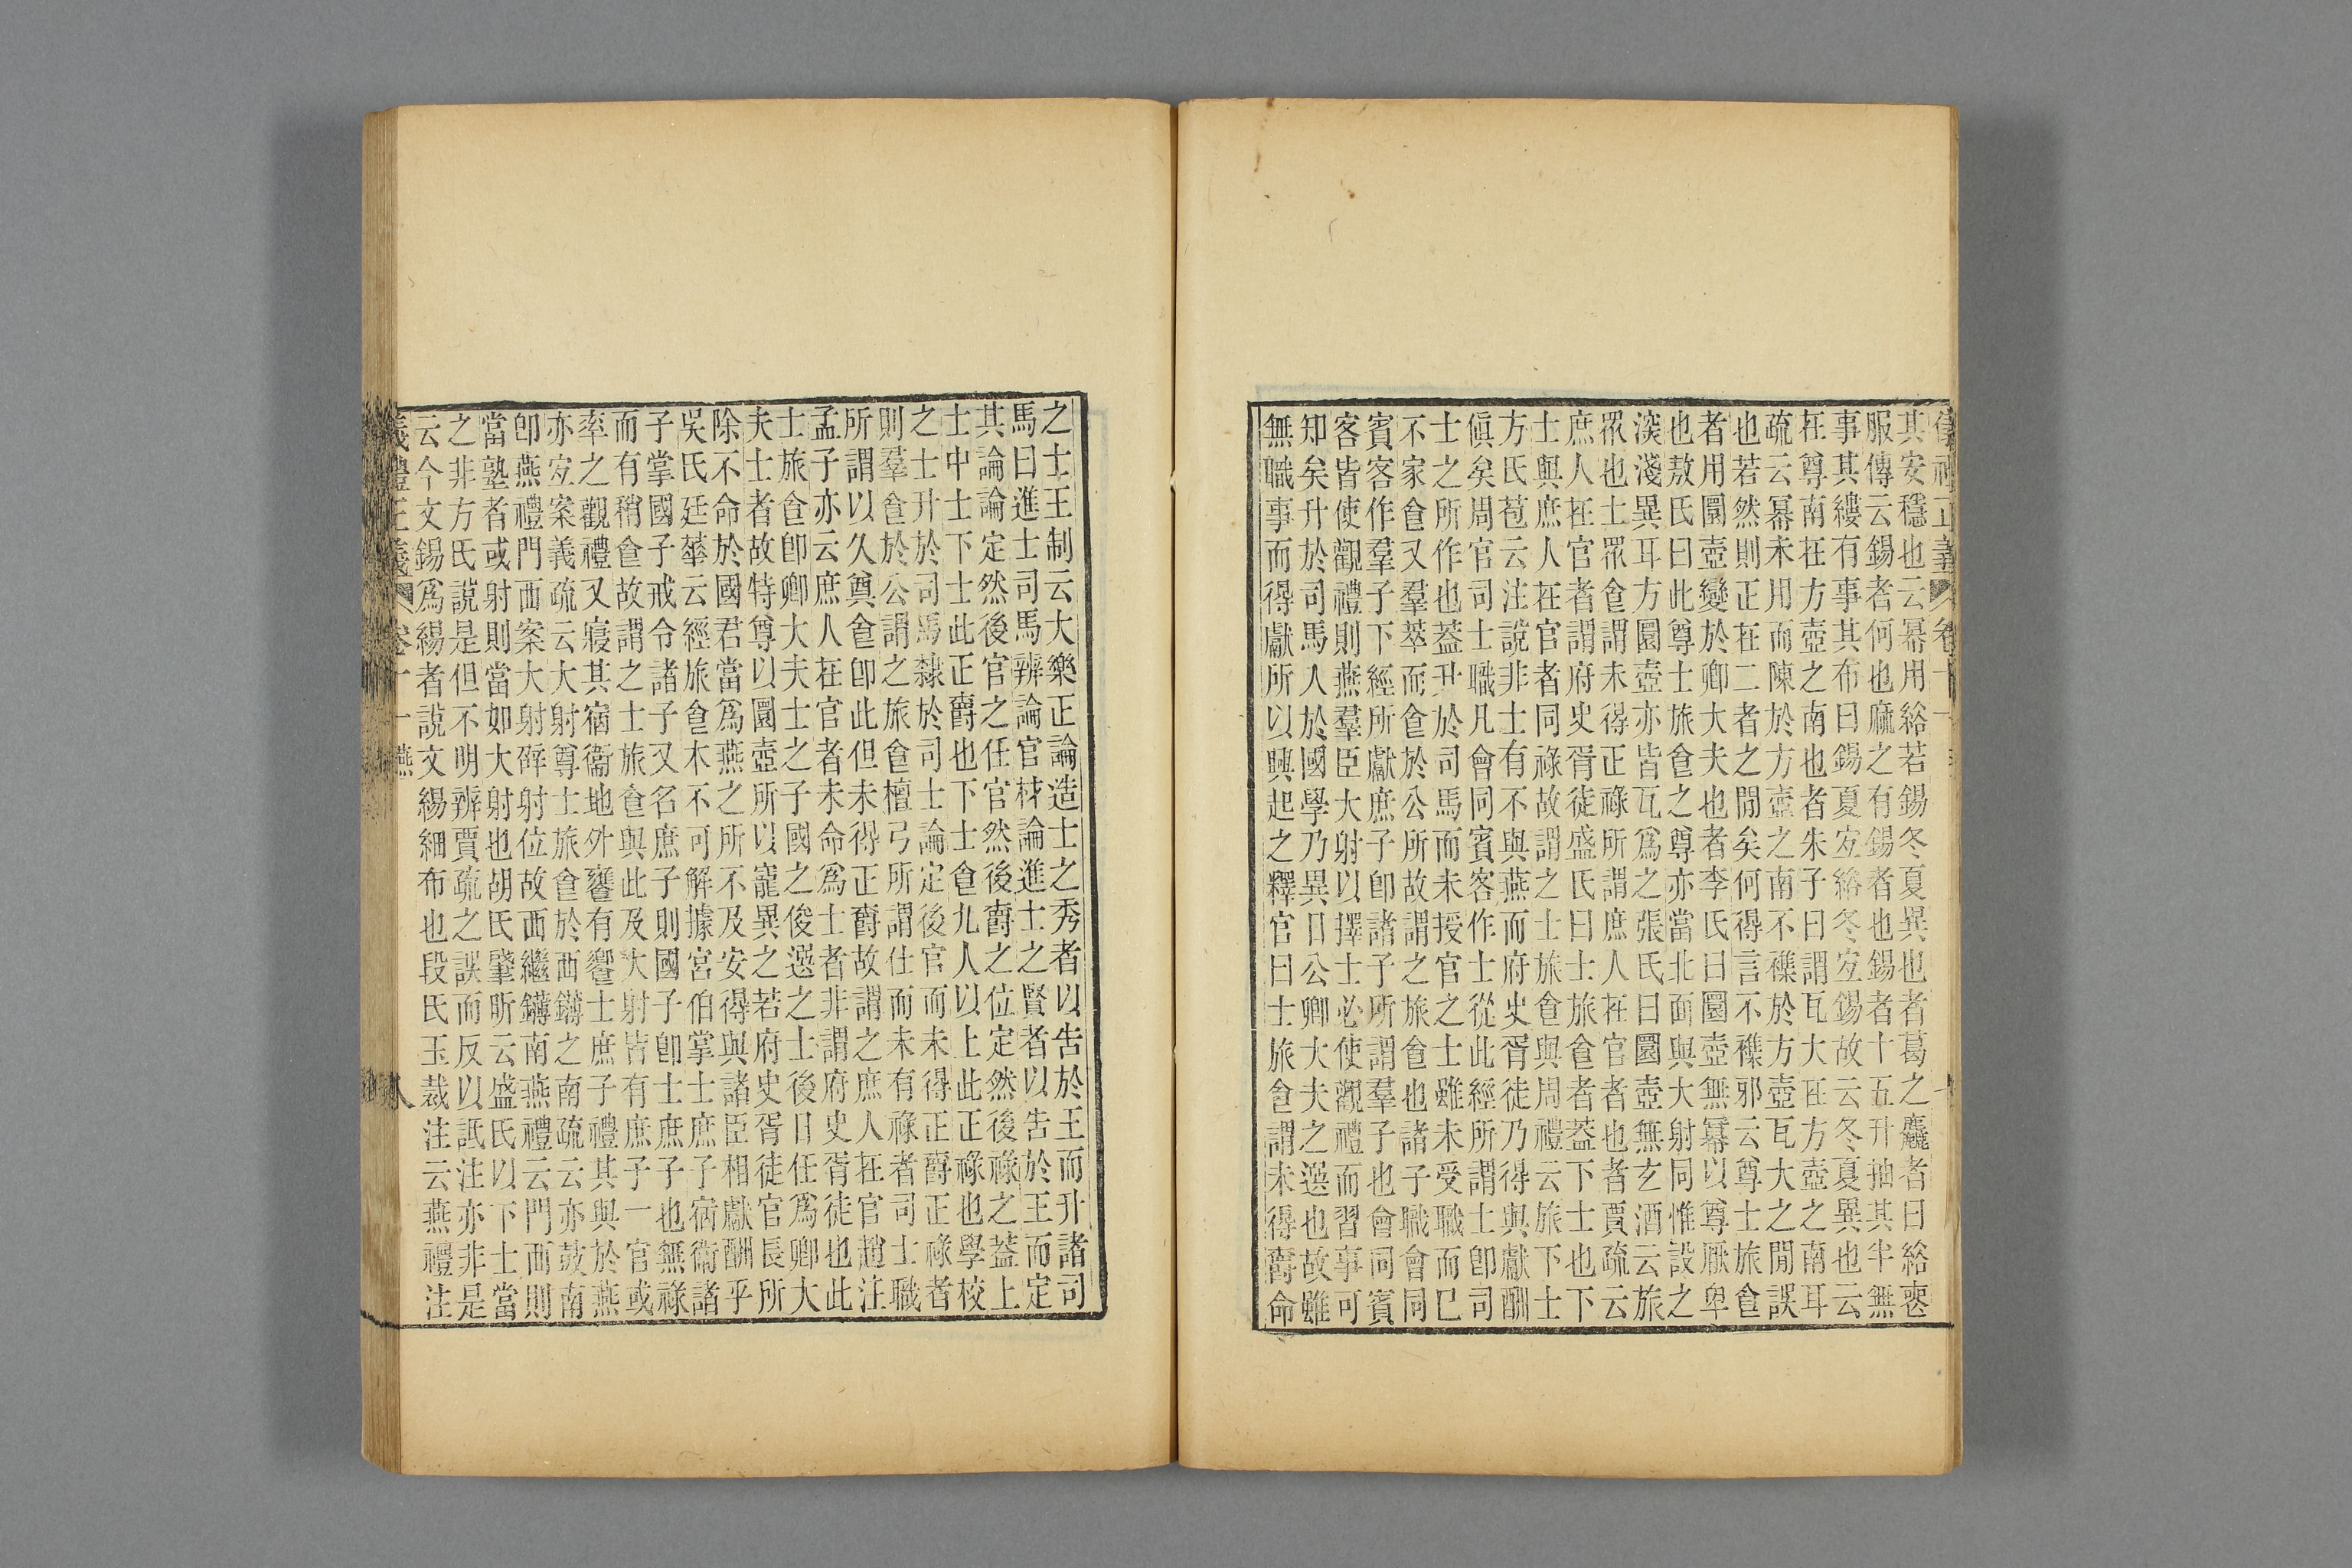 儀禮正義 卷十一
其安穩也云冪用綌若錫冬夏異也者葛之麤者曰綌喪
服傳云錫者何也麻之有錫者也錫者十五升抽其半無
事其縷有事其布曰錫夏宐綌冬宐錫故云冬夏異也云
在尊南在方壺之南也者朱子曰謂瓦大在方壺之南耳
疏云冪未用而陳於方壺之南不襍於方壺瓦大之閒誤
也若然則正在二者之閒矣何得言不襍邪云尊士旅食
者用圜壺變於卿大夫也者李氏曰圜壺無冪以尊厭卑
也敖氏曰此尊士旅食之尊亦當北面與大射同惟設之
深淺異耳方圜壺亦皆瓦爲之張氏曰圜壺無玄酒云旅
眾也士眾食謂未得正祿所謂庶人在官者也者賈疏云
庶人在官者謂府史胥徒盛氏曰士旅食者葢下士也下
士與庶人在官者同祿故謂之士旅食與周禮云旅下士
方氏苞云注說非士有不與燕而府史胥徒乃得與獻酬
傎矣周官司士職凡會同賓客作士從此經所謂士卽司
士之所作也葢升於司馬而未授官之士雖未受職而已
不家食又羣萃而食於公所故謂之旅食也諸子職會同
賓客作羣子下經所獻庶子卽諸子所謂羣子也會同賓
客皆使觀禮則燕羣臣大射以擇士必使觀禮而習事可
知矣升於司馬人於國學乃異日公卿大夫之選也故雖
無職事而得獻所以興起之釋官曰士旅食謂未得爵命
之士王制云大樂正論造士之秀者以告於王而升諸司
馬曰進士司馬辨論官材論進士之賢者以告於王而定
其論論定然後官之任官然後爵之位定然後祿之葢上
士中士下士此正爵也下士食九人以上此正祿也學校
之士升於司馬隸於司士論定後官而未得正爵正祿者
則羣食於公謂之旅食檀弓所謂仕而未有祿者司士職
所謂以久奠食卽此但未得正爵故謂之庶人在官趙注
孟子亦云庶人在官者未命爲士者非謂府史胥徒也此
士旅食卽卿大夫士之子國之俊選之士後日任爲卿大
夫士者故特尊以圜壺所以寵異之若府史胥徒官長所
除不命於國君當爲燕之所不及安得與諸臣相獻酬乎
吳氏廷華云經旅食本不可解據宮伯掌士庶子宿衞諸
子掌國子戒令諸子又名庶子則國子卽士庶子也無祿
而有稍食故謂之士旅食與此及大射皆有庶子一官或
率之觀禮又寢其宿衞地外饔有饗士庶子禮其與於燕
亦宐案義疏云大射尊士旅食於西鑮之南疏云亦鼓南
卽燕禮門西案大射辟射位故西繼鑮南燕禮云門西則
當塾者或射則當如大射也胡氏肇昕云盛氏以下士當
之非方氏說是但不明辨賈疏之誤而反以詆注亦非是
云今文錫爲緆者說文緆細布也段氏玉裁注云燕禮注
儀禮正義 卷十一 燕 八